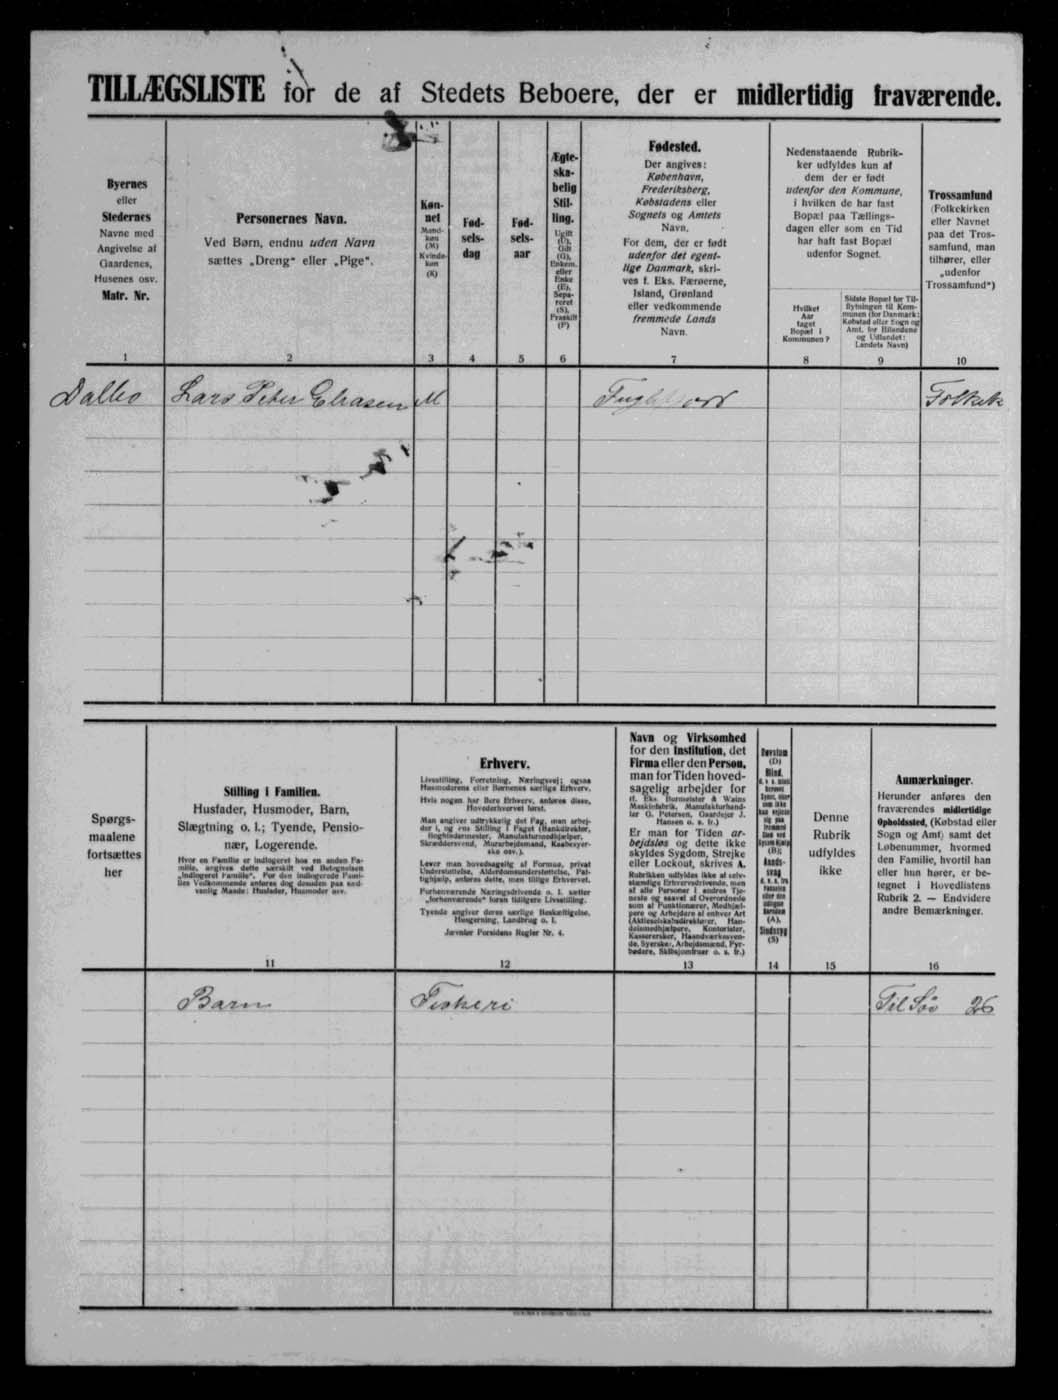 TILLÆGSLISTE for de af Stedets Beboere, der er midlertidig fraværende.
Byernes
eller
Stedernes
Navne med
Angivelse af
Gaardenes,
Husenes osv.
Matr. Nr.
1
Personernes Navn.
Ved Børn, endnu uden Navn
sættes „Dreng“ eller „Pige“.
2
Køn-
net
Mand-
køn
(M)
Kvinde-
køn
(K)
3
Fød-
sels-
dag
4
Fød-
sels-
aar
5
Ægte-
ska-
belig
Stil-
ling.
Ugift
(U),
Gift
(G),
Enkem.
eller
Enke
(E),
Sepa-
reret
(S),
Fraskilt
(F)
6
Fødested.
Der angives:
København,
Frederiksberg,
Købstadens eller
Sognets og Amtets
Navn.
For dem, der er født
udenfor det egent-
lige Danmark, skri-
ves f. Eks. Færøerne,
Island, Grønland
eller vedkommende
fremmede Lands
Navn.
7
Nedenstaaende Rubrik-
ker udfyldes kun af
dem der er født
udenfor den Kommune,
i hvilken de har fast
Bopæl paa Tællings-
dagen eller som en Tid
har haft fast Bopæl
udenfor Sognet.
Hvilket
Aar
taget
Bopæl i
Kommunen?
8
Sidste Bopæl før Til-
flytningen til Kom-
munen (for Danmark:
Købstad eller Sogn og
Amt, for Bilandene
og Udlandet:
Landets Navn)
9
Trossamfund
(Folkekirken
eller Navnet
paa det Tros-
samfund, man
tilhører, eller
„udenfor
Trossamfund“)
10
Dalbo Lars Peter Eliasen M Folkek
Spørgs-
maalene
fortsættes
her
Stilling i Familien.
Husfader, Husmoder, Barn,
Slægtning o. l.; Tyende, Pensio-
nær, Logerende.
Hvor en Familie er indlogeret hos en anden Fa-
milie, angives dette særskilt ved Betegnelsen
„indlogeret Familie“. For den indlogerede Fami-
lies Vedkommende anføres dog desuden paa sæd-
vanlig Maade: Husfader, Husmoder osv.
11
Erhverv.
Livsstilling, Forretning, Næringsvej; ogsaa
Husmoderens eller Børnenes særlige Erhverv.
Hvis nogen har flere Erhverv, anføres disse,
Hovederhvervet først.
Man angiver udtrykkelig det Fag, man arbej-
der i, og ens Stilling i Faget (Bankdirektør,
Bogbindermester, Manufakturmedhjælper,
Skræddersvend, Murarbejdsmand, Kaabesyer-
ske osv.).
Lever man hovedsagelig af Formue, privat
Understøttelse, Alderdomsunderstøttelse, Fat-
tighjælp, anføres dette, men tillige Erhvervet.
Forhenværende Næringsdrivende o. l. sætter
„forhenværende“ foran tidligere Livsstilling.
Tyende angiver deres særlige Beskæftigelse,
Husgerning, Landbrug o. l.
Jævnfør Forsidens Regler Nr. 4.
12
Navn og Virksomhed
for den Institution, det
Firma eller den Person,
man for Tiden hoved-
sagelig arbejder for
(f. Eks. Burmeister & Wains
Maskinfabrik, Manufakturhand-
ler G. Petersen, Gaardejer J.
Hansen o. s. fr.)
Er man for Tiden ar-
bejdsløs og dette ikke
skyldes Sygdom, Strejke
eller Lockout, skrives A.
Rubrikken udfyldes ikke af selv-
stændige Erhvervsdrivende, men
af alle Personer i andres Tje-
neste og saavel af Overordnede
som af Funktionærer, Medhjæl-
pere og Arbejdere af enhver Art
(Aktieselskabsdirektører, Han-
delsmedhjælpere, Kontorister,
Kasserersker, Haandværkssven-
de, Syersker, Arbejdsmænd, Fyr-
bødere, Skibsjomfruer o. s. fr.)
13
Døvstum
(D)
Blind,
(B);
Aands-
svag
(A),
Sindssyg
(S)
14
Denne
Rubrik
udfyldes
ikke
15
Anmærkninger.
Herunder anføres den
fraværendes midlertidige
Opholdssted, (Købstad eller
Sogn og Amt) samt det
Løbenummer, hvormed
den Familie, hvortil han
eller hun hører, er be-
tegnet i Hovedlistens
Rubrik 2. — Endvidere
andre Bemærkninger.
16
Barn Fiskeri Til Søs 26